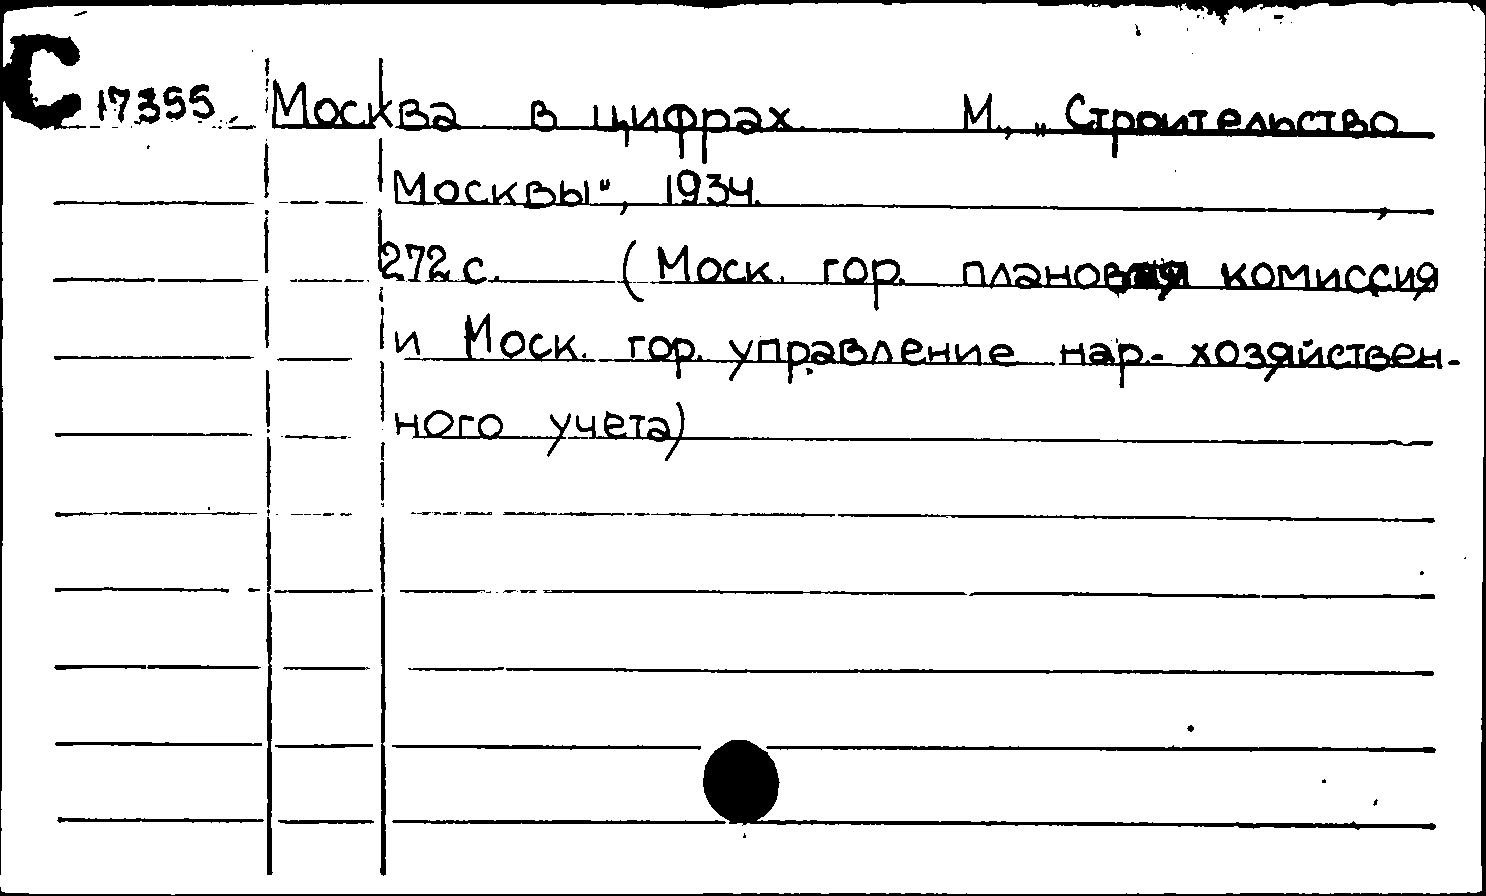 С 17355 Москва в цифрах М., „Строительство
Москвы", 1934. ,
272 с. (Моск. гор. плановая комиссия
и Моск. гор. управление нар- хозяйствен-
ного учета)